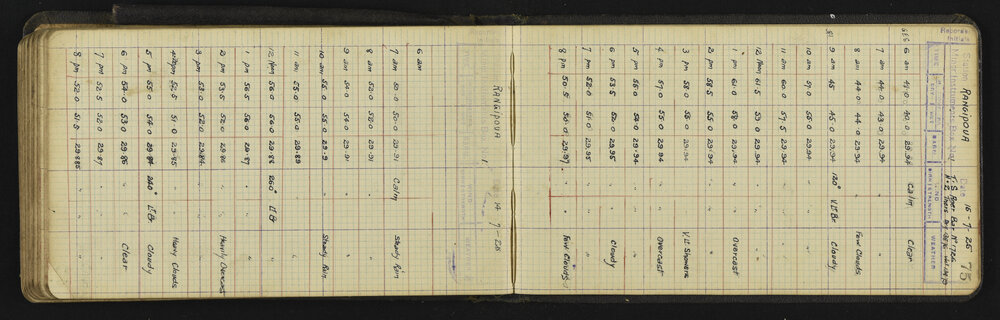 Station RANGIPOUA Date 16-7-25 75
Meteorological
TIME BARO. WIND WEATHER
6 am 49.0 49.0 29.94 Calm Clear
7 am 44.0 43.0 29.94 " "
8 am 44.0 44.0 29.94 " Few Clouds
9 am 45 45.0 29.94 120° V Lt Br Cloudy
10 am 57.0 55.0 29.94 " " "
11 am 60.0 57.5 29.94 " " "
12 Noon 61.5 59.0 29.94 " " "
1 pm 61.0 58.0 29.94 " " Overcast
2 pm 58.5 55.0 29.94 " " "
3 pm 58.0 55.0 29.94 " " V Lt Showers
4 pm 57.0 55.0 29.94 " " Overcast
5 pm 55.0 54.0 29.94 " " "
6 pm 53.5 52.0 29.95 " " Cloudy
7 pm 52.0 51.0 29.95 " " "
8 pm 50.5 50.0 29.97 " " Few Clouds
RANGIPOUA 14 7-25
6 am
7 am 50.0 50.0 29.91 Calm Steady Rain
8 am 52.0 52.0 29.91 " "
9 am 54.0 54.0 29.91 " "
10 am 55.0 55.0 29.9 " Steady Rain
11 am 55.0 55.0 29.89 " "
12 Noon 56.0 56.0 29.88 260° Lt Br "
1 pm 56.5 56.0 29.87 " " "
2 pm 53.5 52.0 29.86 " " Heavily Overcast
3 pm 53.0 52.0 29.86 " " "
4 pm 52.5 51.0 29.85 " " Heavy Clouds
5 pm 55.0 54.0 29.84 240° Lt Br Cloudy
6 pm 54.0 53.0 29.86 " " Clear
7 pm 52.5 52.0 29.87 " " "
8 pm 52.0 51.5 29.885 " " "